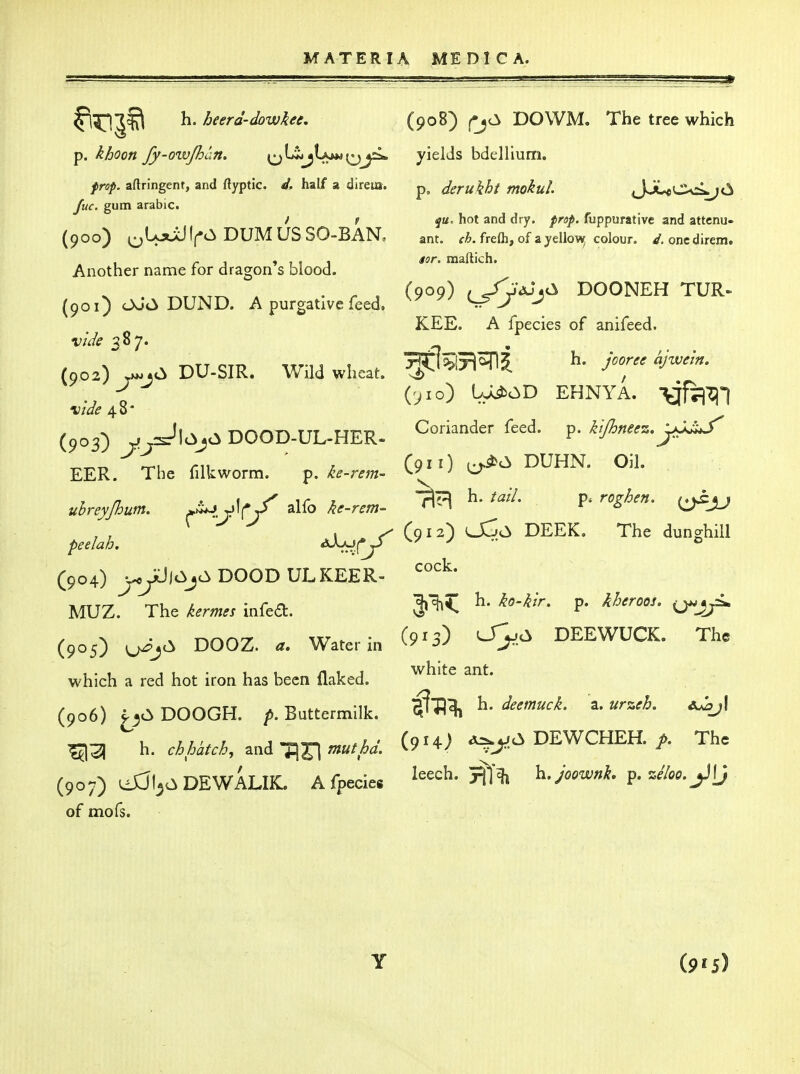 MATERIA MEDICA.
h. heerá-dowkee.
p. khoon ſy-owſhán.
prop. aſtringent, and ſtyptic. d. half a direm.
ſuc. gum arabic.
(900) DUM US SO-BAN.
Another name for dragon's blood.
(901) دند DUND. A purgative ſeed.
vide 387.
(902) دوسر DU-SIR. Wild wheat.
vide 48.
(903) DOOD-UL-HER-
EER. The ſilkworm. p. ke-rem-
ubreyſhum. alſo ke-rem-
peelah. كرم پيله
(904) DOOD UL KEER-
MUZ. The kermes inſect.
(905) دوض DOOZ. a. Water in
which a red hot iron has been ſlaked.
(906) دوغ DOOGH. p. Buttermilk.
h. chhátch, and muthá.
(907) DEWÁLIK. A ſpecies
of moſs.
(908) دوم DOWM. The tree which
yields bdellium.
p. derukht mokul. درخت مقل
qu. hot and dry. prop. ſuppurative and attenu-
ant. ch. freſh, of a yellow colour. d. one direm.
sor. maſtich.
(909) DOONEH TUR-
KEE. A ſpecies of aniſeed.
h. jooree ájwein.
(910) EHNYÁ.
Coriander ſeed. p. kiſhneez. كشنيز
(911) دهن DUHN. Oil.
h. tail. p. roghen. روغن
(912) ديك DEEK. The dunghill
cock.
h. ko-kir. p. kheroos. خروس
(913) ديوك DEEWUCK. The
white ant.
h. deemuck. a. urzeh. ارضه
(914) ديوچه DEWCHEH. p. The
leech. h. joownk. p. zéloo. زالو
Y
(915)